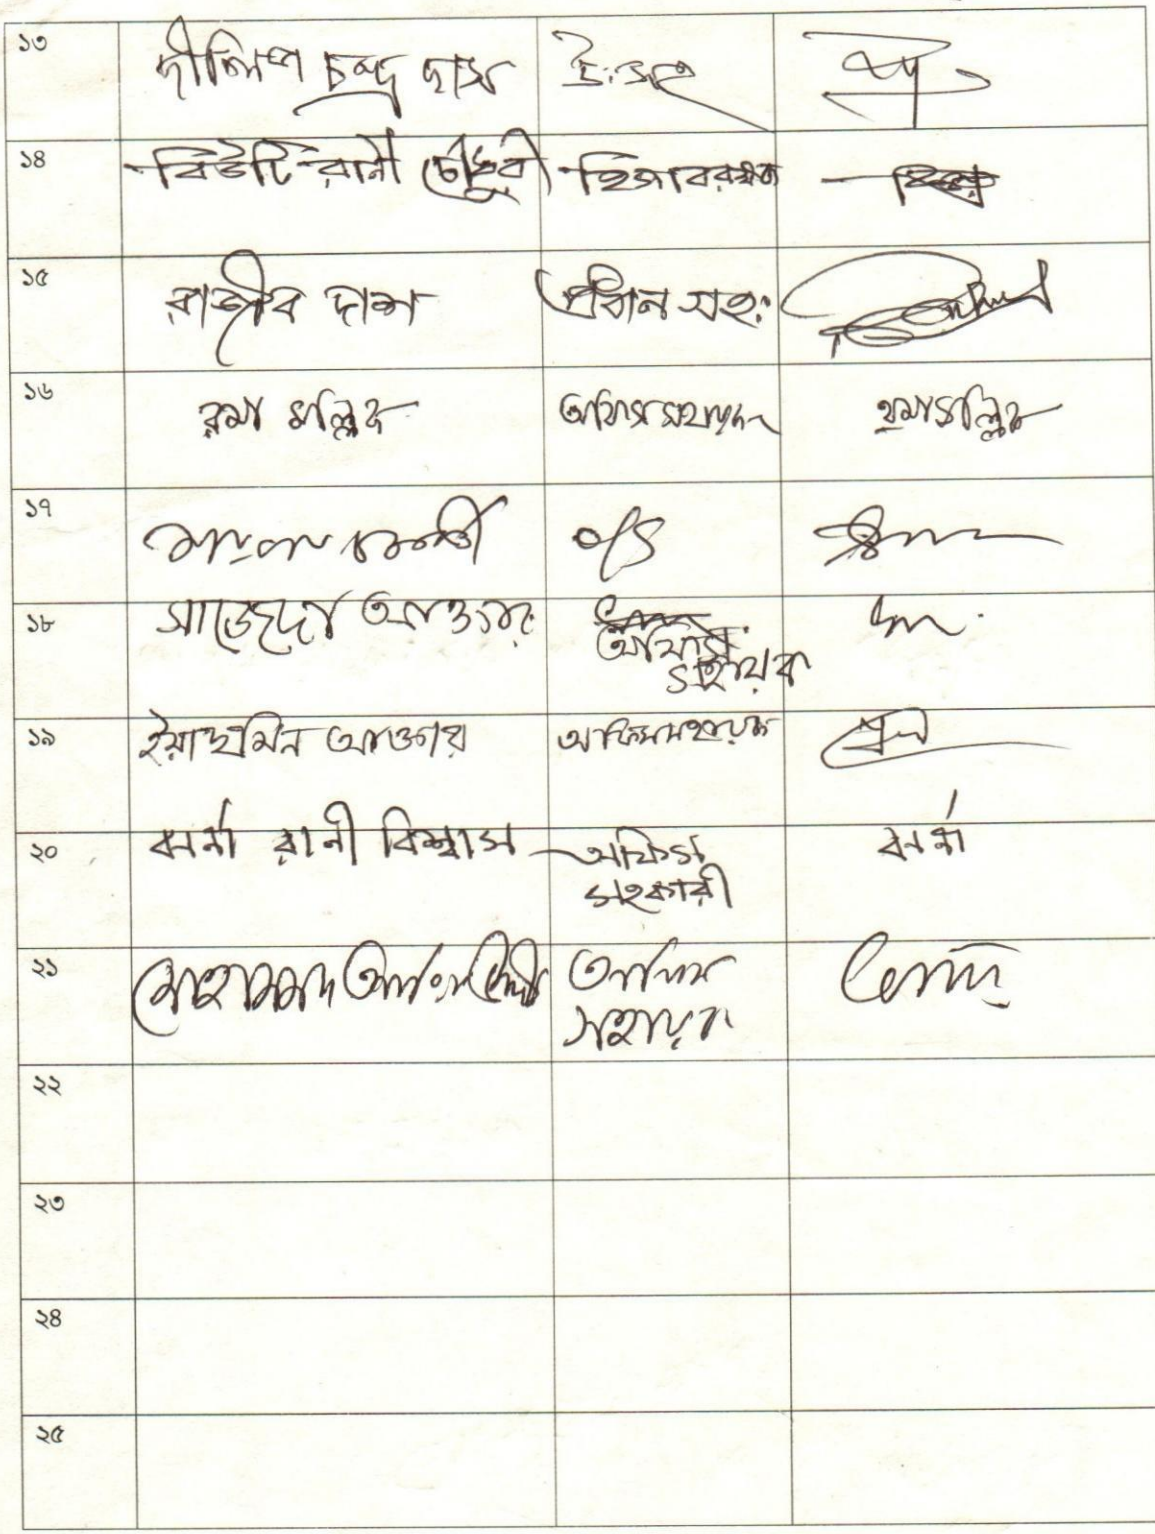 ১৩ দীলিপ চন্দ্র দাস উঃসহ
১৪ বিউটি রানী চৌধুরী হিসাবরক্ষক
১৫ রাজীব দাশ প্রধান সহঃ
১৬ রমা মল্লিক অফিস সহায়ক রমা মল্লিক
১৭ o/s
১৮ সাজেদা আক্তার অফিস
সহায়ক
১৯ ইয়াছমিন আক্তার অফিস সহায়ক
২০ ঝর্না রানী বিশ্বাস অফিস ঝর্না
সহকারী
২১ মোহাম্মদ অফিস
সহায়ক
২২
২৩
২৪
২৫